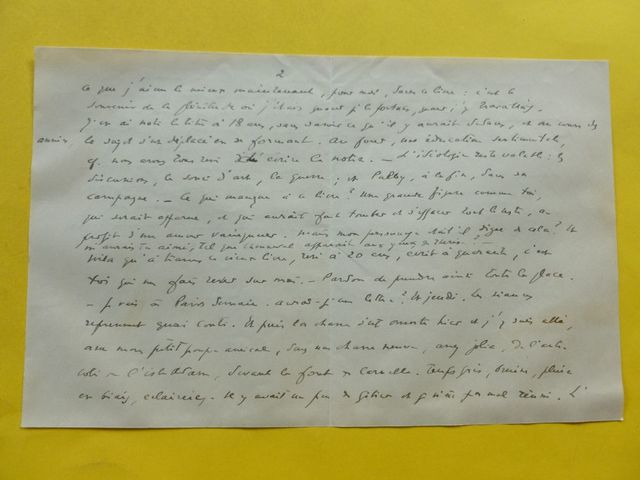 2
ce que j'aime le mieux maintenant, pour moi, dans ce livre : c'est le
souvenir de la plénitude où j'étais quand je le portais, quand j'y travaillais.
J'en ai noté le titre à 18 ans, sans savoir ce qu'il y aurait dedans, et au cours des
années, le sujet s'est déplacé en se formant. Au fond, une éducation sentimentale,
nous avons tous écrire la notre. — L'idéologie
discussions, le souci d'art, la guerre ; et à la fin, dans sa
campagne. — Ce qui manque à ce livre ? Une grande figure comme toi,
qui serait apparue, et qui aurait fait tomber et s'effacer tout le reste, au
profit d'un amour vainqueur. Mais mon personnage était-il digne de cela ? Et
m'aurais-tu aimé, tel que
à travers ce vieux livre, à 20 ans, écrit à quarante, c'est
toi qui me fais rêver sur moi. — Pardon de prendre ainsi toute la place.
— Je vais à Paris demain. aurai-je une lettre ? Et jeudi. Les séances
reprennent quai Conti. Et puis la chasse s'est ouverte hier et j'y suis allé,
avec mon petit groupe amical, dans une chasse neuve, assez jolie, de l'autre
côté de devant la forêt de Temps gris, bruine, pluie
en biais, éclaircies. Il y avait un peu de gibier et je n'ai pas mal réussi. L'